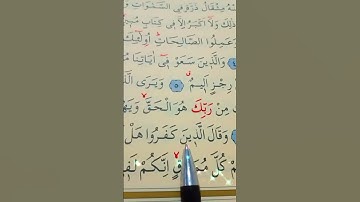 مِثْقَالُ ذَرَّةٍ فِي السَّمٰوَاتِ
ذٰلِكَ وَلَٓا اَكْبَرُ اِلَّا فِي كِتَابٍ
وَعَمِلُوا الصَّالِحَاتِ اُو۬لٰٓئِكَ
وَالَّذِينَ سَعَوْ فِٓي اٰيَاتِنَا
رِجْزٍ اَلِيمٌ ٥ وَيَرَى
مِنْ رَبِّكَ هُوَ الْحَقَّ
وَقَالَ الَّذِينَ كَفَرُوا هَلْ
كُلَّ مُمَزَّقٍ اِنَّكُمْ